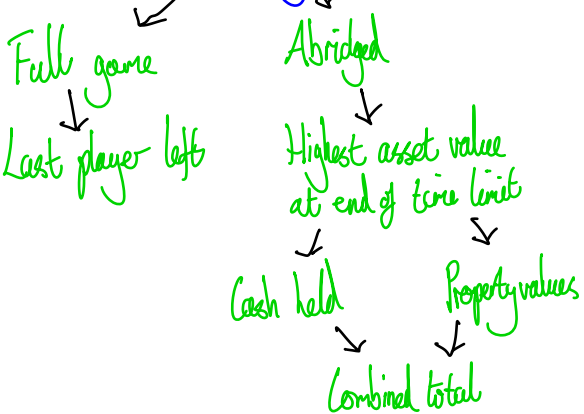 Full game
Abridged
Last player left
Highest asset value
at end of time limit
Cash held
Property values
Combined total